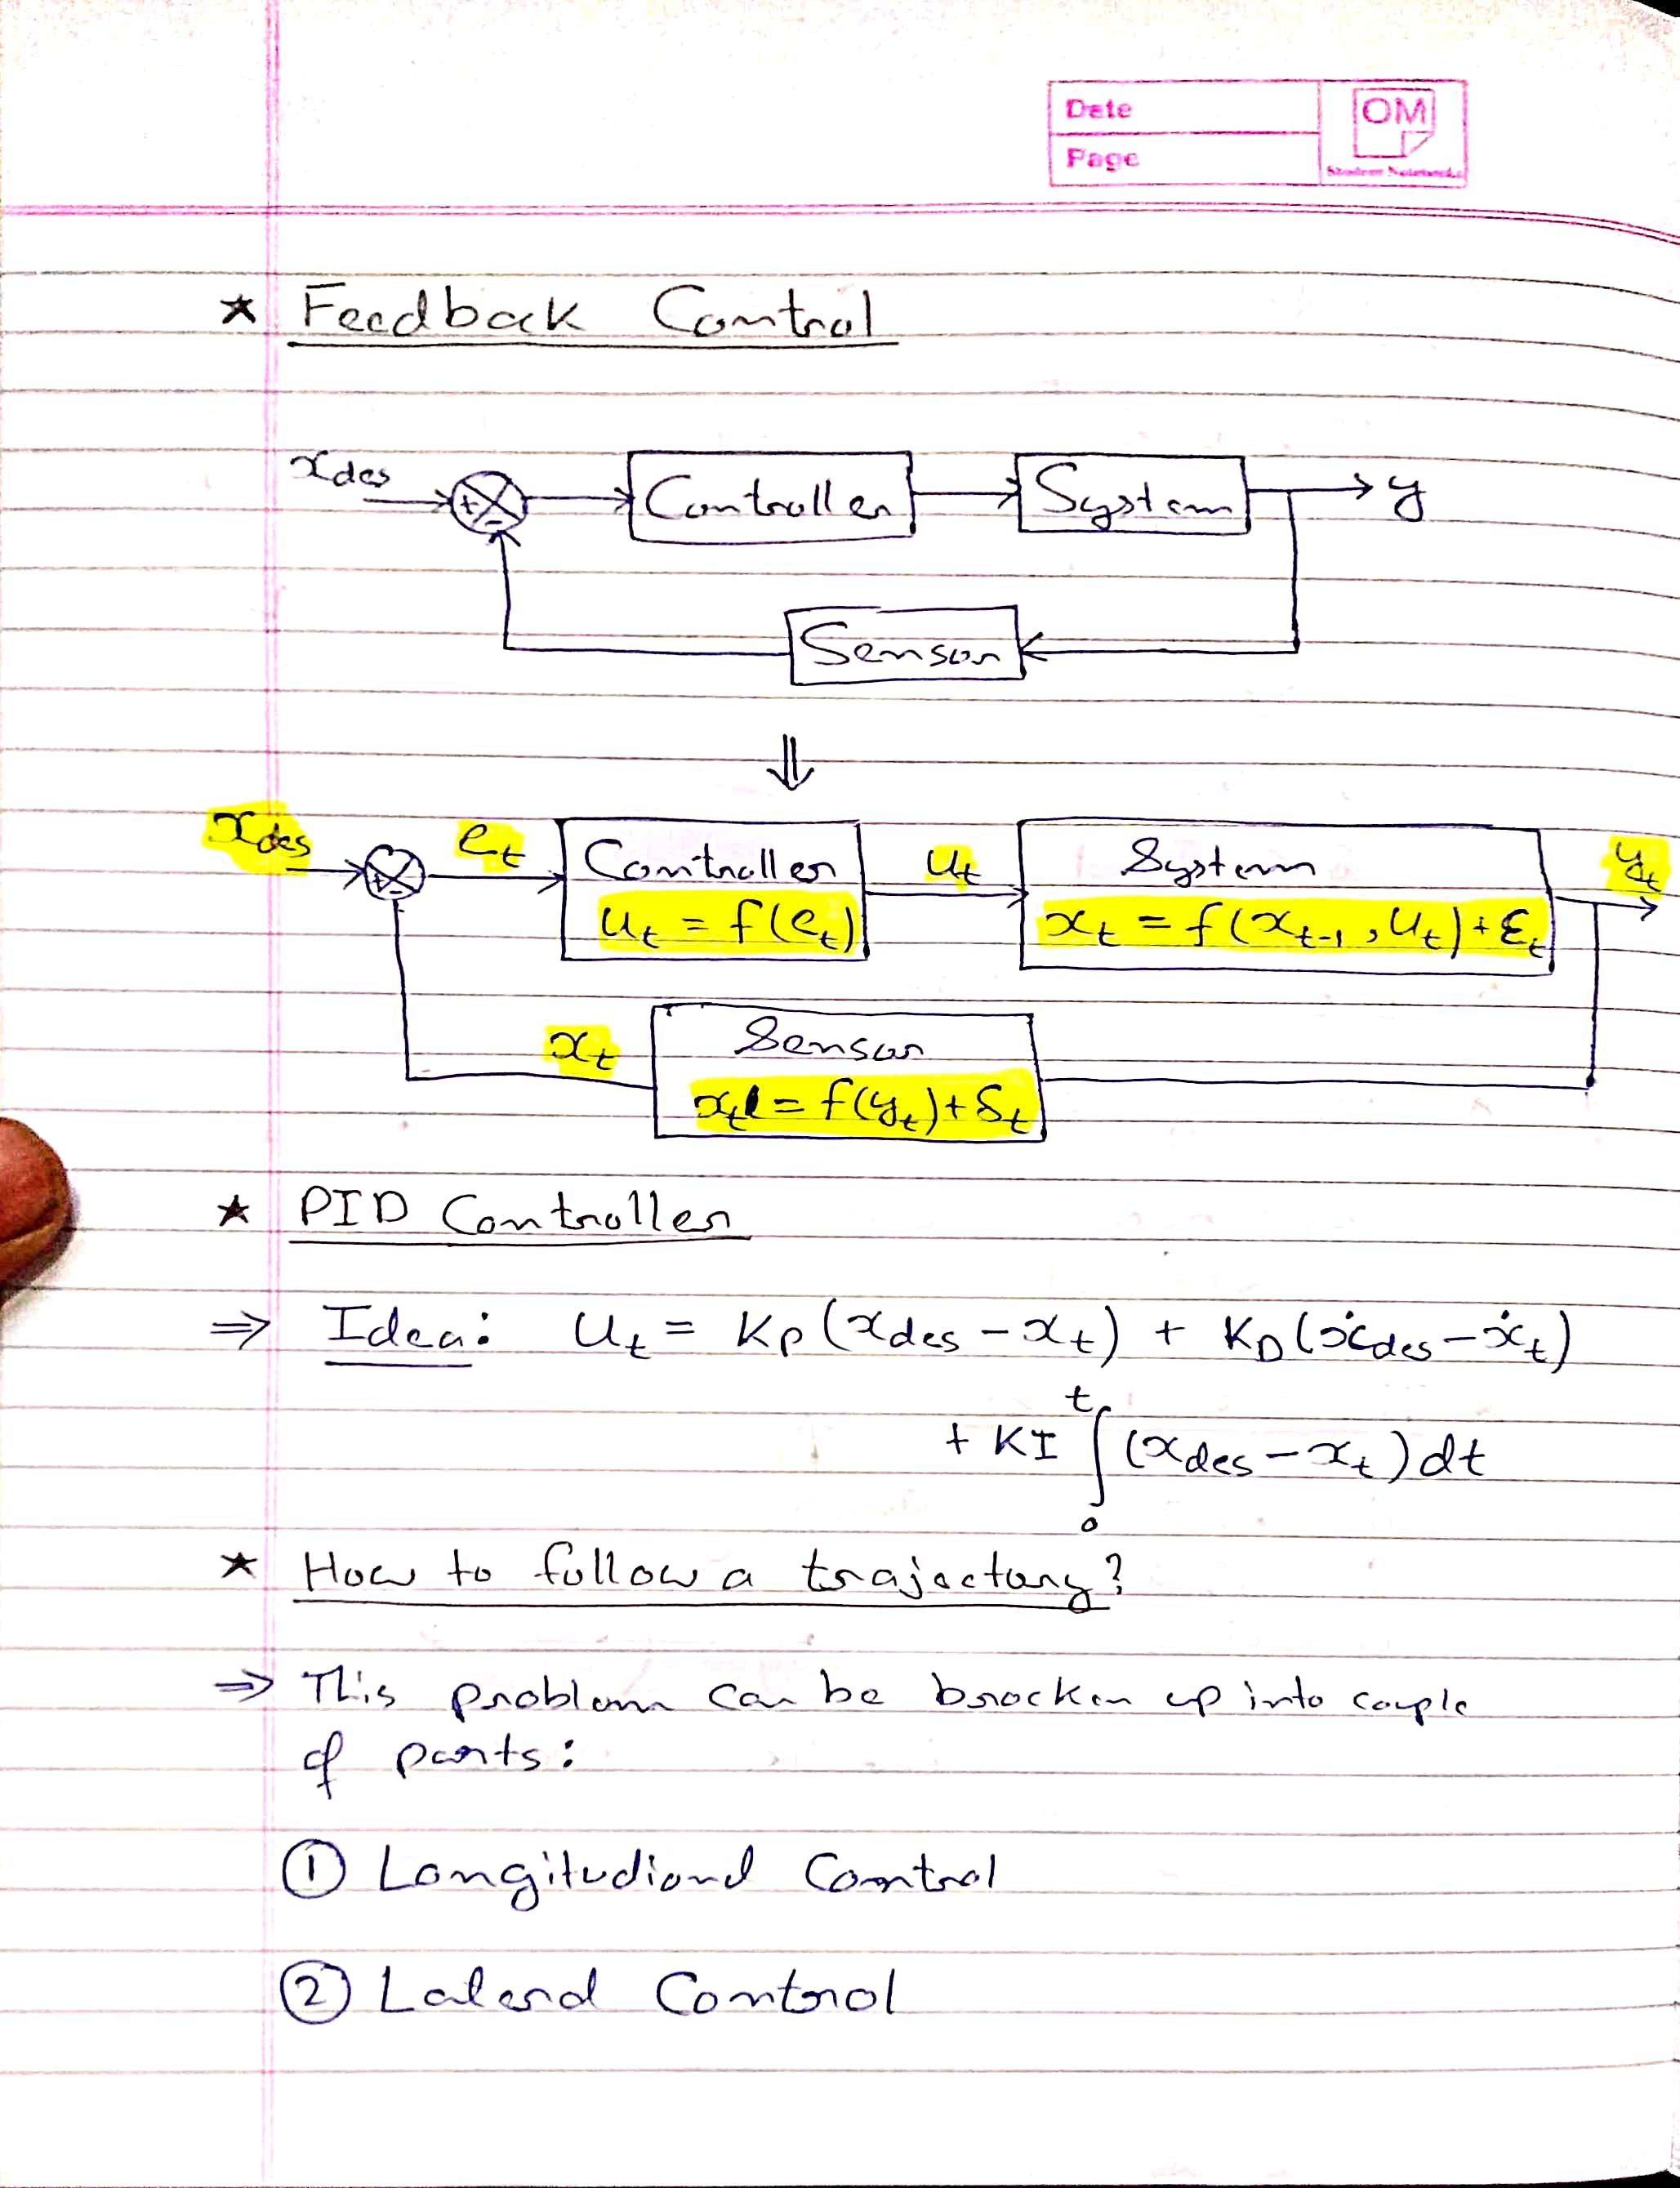 Date
OM
Page
Student Notebooks
★ Feedback Control
xdes + - Controller System y
Sensor
⇓
xdes + - et Controller ut System yt
ut = f(et) xt = f(xt-1, ut) + εt
xt Sensor
xt = f(yt) + δt
★ PID Controller
⇒ Idea: ut = KP (xdes - xt) + KD (ẋdes - ẋt)
+ KI ∫₀ᵗ (xdes - xt) dt
★ How to follow a trajectory?
⇒ This problem can be brocken up into couple
of parts:
① Longitudional Control
② Lateral Control